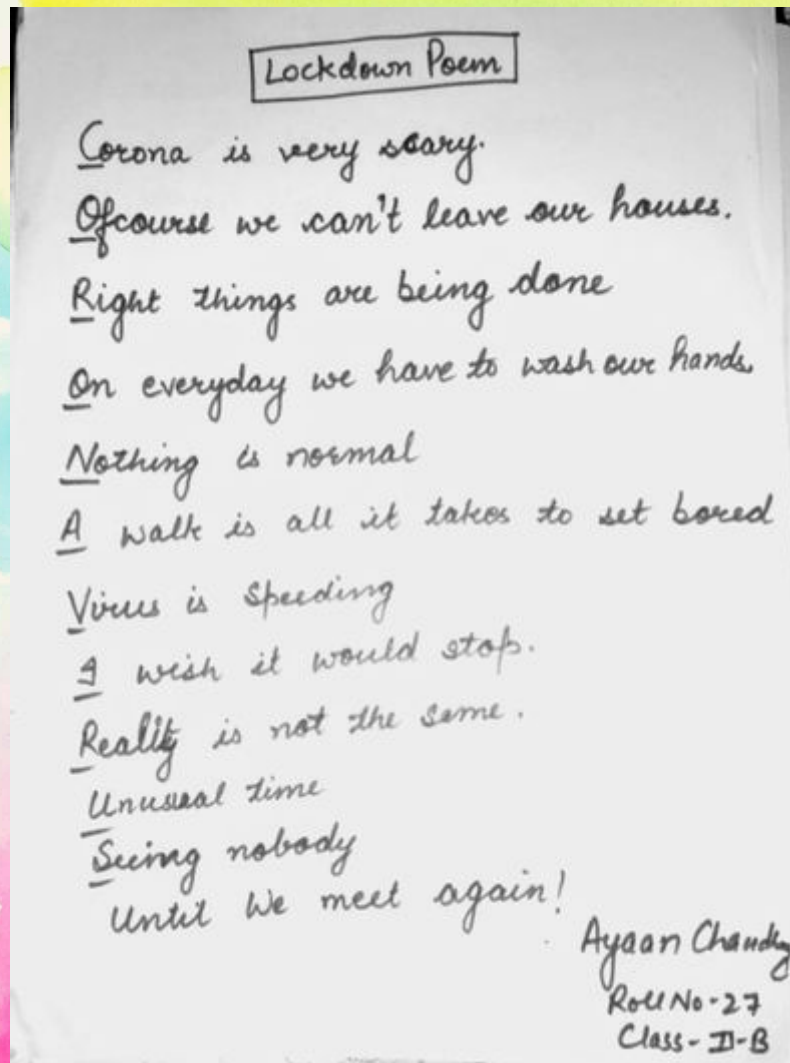 Lockdown Poem
Corona is very scary.
Ofcourse we can't leave our houses.
Right things are being done
On everyday we have to wash our hands.
Nothing is normal
A walk is all it takes to set bored
Virus is speeding
I wish it would stop.
Reality is not the same.
Unusual time
Seeing nobody
Until We meet again!
Ayaan
Roll No-27
Class-II-B